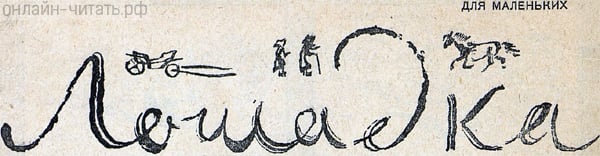 онлайн-читать.рф
ДЛЯ МАЛЕНЬКИХ
Лошадка